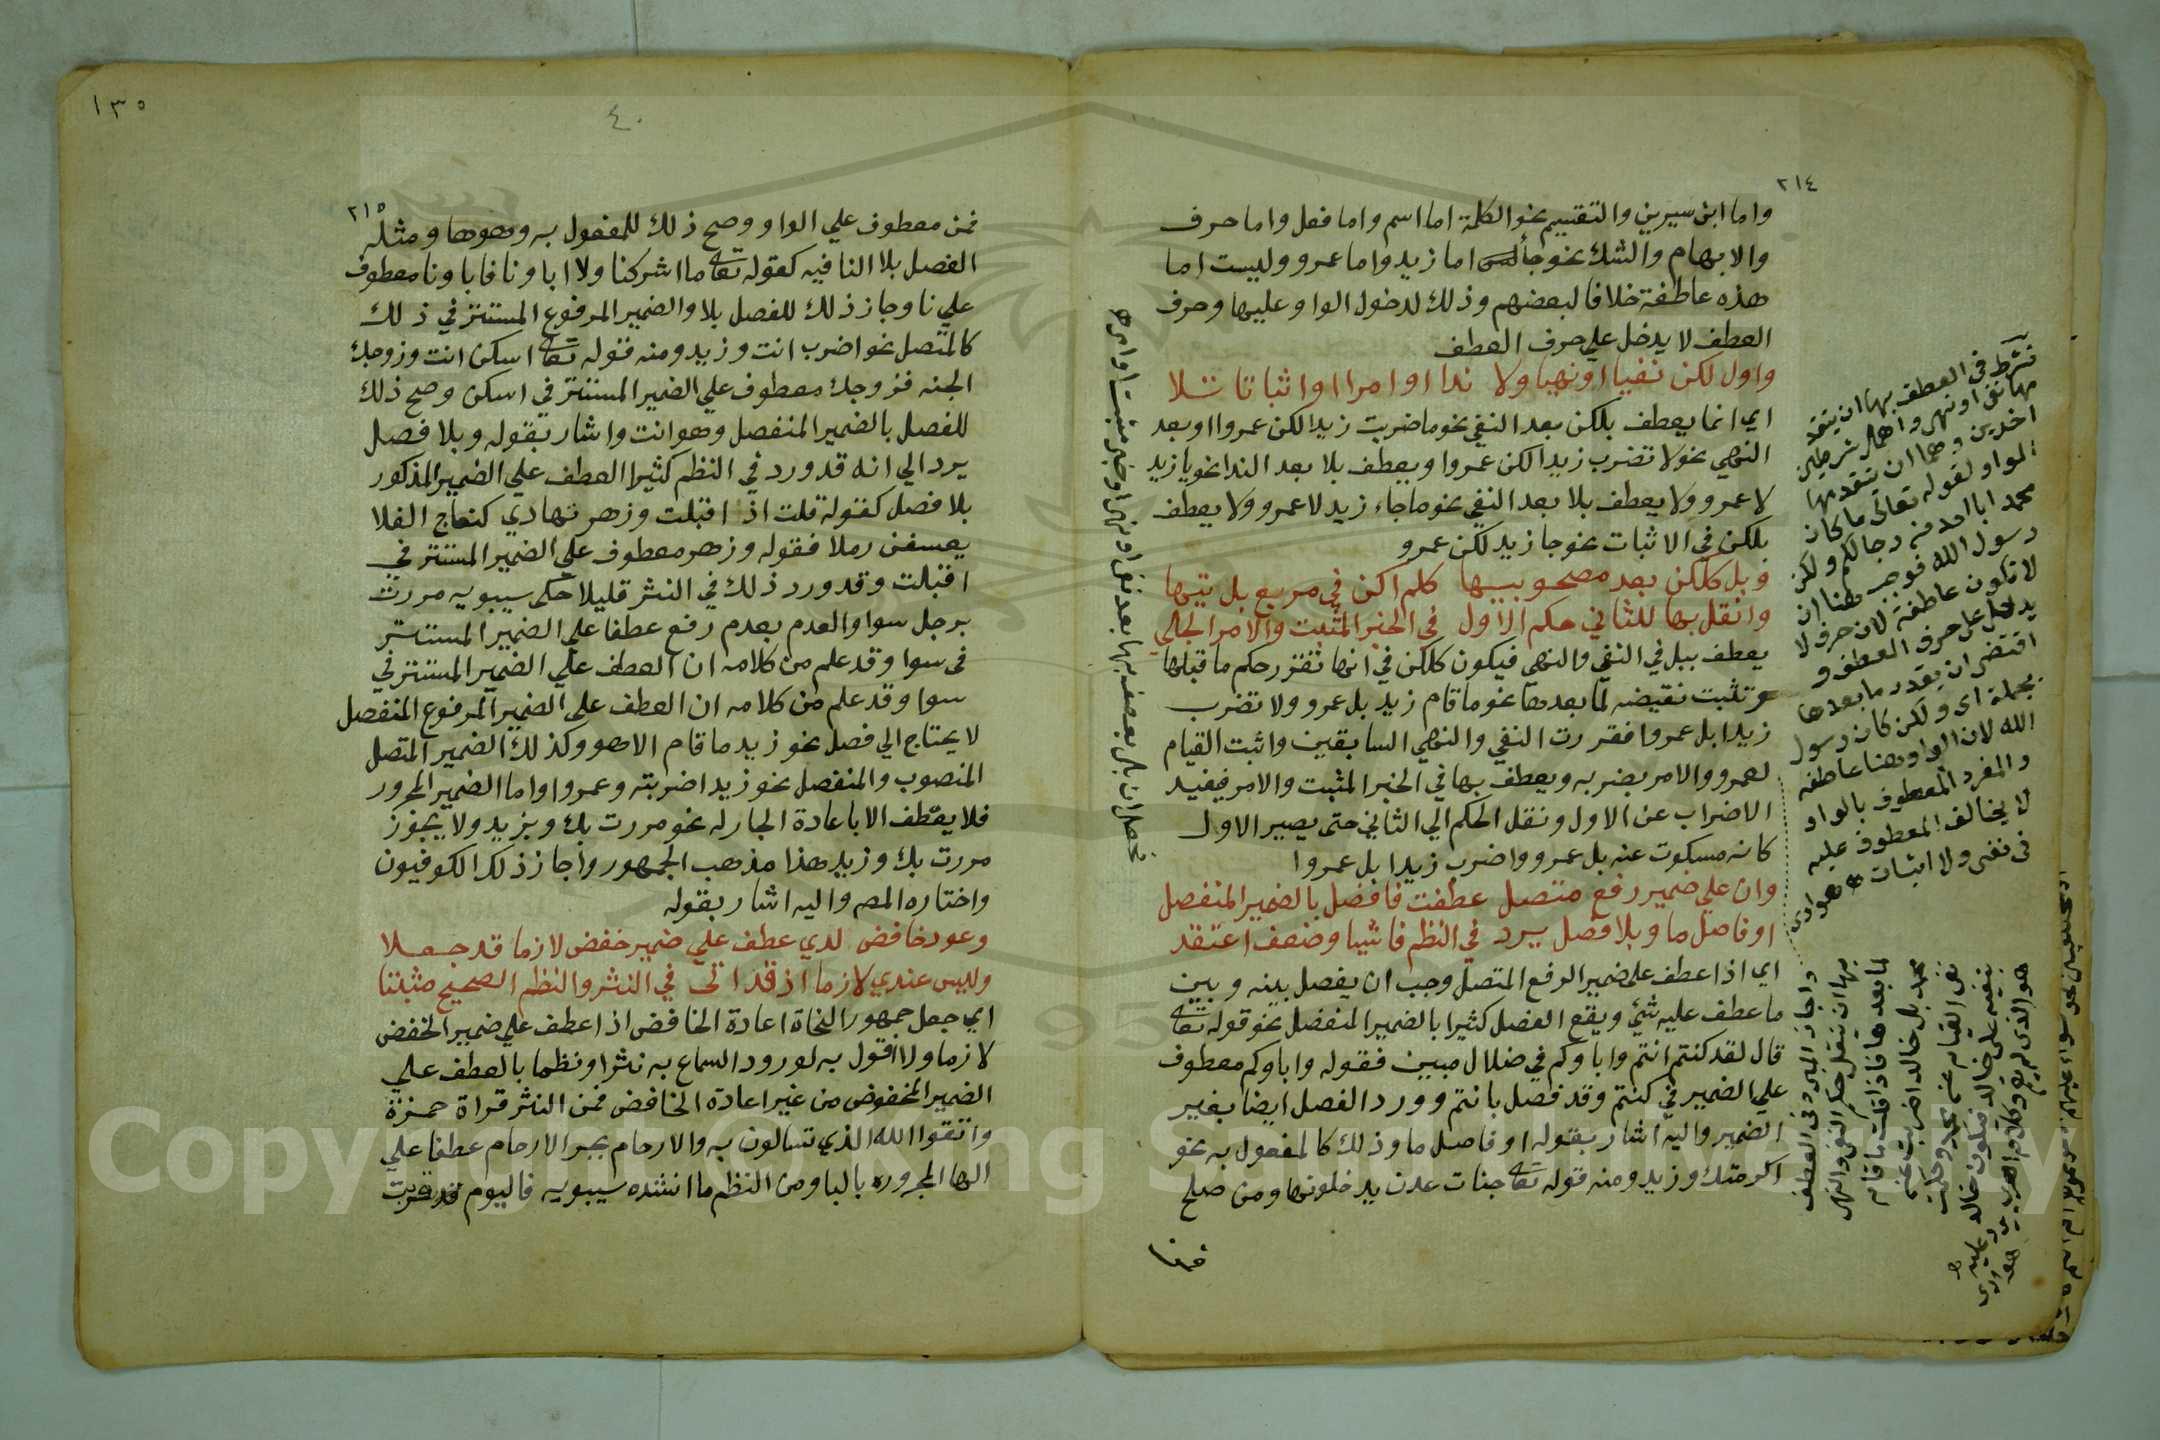 ٢١٤
واما ابن سيرين والتقسيم نحو الكلمة اما اسم واما فعل واما حرف
والابهام والشك نحو جالس اما زيد واما عمرو وليست اما
هذه عاطفة خلافا لبعضهم وذلك لدخول الواو عليها وحرف
العطف لا يدخل علي حرف العطف
واول لكن نفيا او نهيا ولا ندا او امرا او اثباتا تلا
اي انما يعطف بلكن بعد النفي نحو ما ضربت زيدا لكن عمروا وبعد
النهي نحو لا تضرب زيدا لكن عمروا ويعطف بلا بعد الندا نحو يا زيد
لا عمرو ولا يعطف بلا بعد النفي نحو ما جاء زيد لا عمرو ولا يعطف
بلكن في الاثبات نحو جا زيد لكن عمرو
وبل كلكن بعد مصحوبيها كلم اكن في مربع بل تيها
وانقل بها للثاني حكم الاول في الخبر المثبت والامر الجلي
يعطف ببل في النفي والنهي فيكون كلكن في انها تقرر حكم ما قبلها
وتثبت نقيضه لما بعدها نحو ما قام زيد بل عمرو ولا تضرب
زيدا بل عمروا فقررت النفي والنهي السابقين واثبت القيام
لعمرو والامر بضربه ويعطف بها في الخبر المثبت والامر فيفيد
الاضراب عن الاول ونقل الحكم الي الثاني حتى يصير الاول
كانه مسكوت عنه بل عمرو واضرب زيدا بل عمروا
وان علي ضمير رفع متصل عطفت فافصل بالضمير المنفصل
او فاصل ما وبلا فصل يرد في النظم فاشيا وضعف اعتقد
اي اذا عطف على ضمير الرفع المتصل وجب ان يفصل بينه وبين
ما عطف عليه شئ ويقع الفصل كثيرا بالضمير المنفصل نحو قوله تعالى
قال لقد كنتم انتم واباوكم في ضلال مبين فقوله واباوكم معطوف
علي الضمير في كنتم وقد فصل بانتم وورد الفصل ايضا بغير
الضمير واليه اشار بقوله او فاصل ما وذلك كالمفعول به نحو
اكرمتك وزيد ومنه قوله تعالى جنات عدن يدخلونها ومن صلح
فمن
تشترط في العطف بها ان يتقد
مها نفي او نهي واهمل شرطين
اخرين وهما ان يتقدمها
الواو لقوله تعالى ما كان
محمد ابا احد من رجالكم ولكن
رسول الله فوجب هنا ان
لا تكون عاطفة لان حرف لا
يدخل على حرف العطف و
اقتضى ان يقدر ما بعدها
بجملة اي ولكن كان رسول
الله لان الواو هنا عاطفة
والمفرد المعطوف بالواو
لا يخالف المعطوف عليه
في نفي ولا اثبات
واجاز المبرد في العطف
بها ان تنقل حكم النفي والنهي
لما بعدها فاذا قلت ما قام
١٣٥
٤٠
٢١٥
فمن معطوف علي الواو وصح ذلك للمفعول به وهو ها ومثله
الفصل بلا النافيه كقوله تعالى ما اشركنا ولا اباونا فاباونا معطوف
علي نا وجاز ذلك للفصل بلا والضمير المرفوع المستتر في ذلك
كالمتصل نحو اضرب انت وزيد ومنه قوله تعالى اسكن انت وزوجك
الجنه فزوجك معطوف علي الضمير المستتر في اسكن وصح ذلك
للفصل بالضمير المنفصل وهو انت واشار بقوله وبلا فصل
يرد الي انه قد ورد في النظم كثيرا العطف علي الضمير المذكور
بلا فصل كقوله قلت اذ اقبلت وزهر تهادي كنعاج الفلا
يعسفن رملا فقوله وزهر معطوف علي الضمير المستتر في
اقبلت وقد ورد ذلك في النثر قليلا حكى سيبويه مررت
برجل سوا والعدم بعدم رفع عطفا علي الضمير المستتر
في سوا وقد علم من كلامه ان العطف علي الضمير المستتر في
سوا وقد علم من كلامه ان العطف على الضمير المرفوع المنفصل
لا يحتاج الي فصل نحو زيد ما قام الا هو وكذلك الضمير المتصل
المنصوب والمنفصل نحو زيدا ضربته وعمروا واما الضمير المجرور
فلا يعطف الا باعادة الجار له نحو مررت بك وبزيد ولا يجوز
مررت بك وزيد هذا مذهب الجمهور واجاز ذلك الكوفيون
واختاره المص واليه اشار بقوله
وعود خافض لدي عطف علي ضمير خفض لازما قد جعلا
وليس عندي لازما اذ قد اتى في النثر والنظم الصحيح مثبتا
اي جعل جمهور النحاة اعادة الخافض اذا عطف علي ضمير الخفض
لازما ولا اقول به لورود السماع به نثرا ونظما بالعطف علي
الضمير المخفوض من غير اعادة الخافض فمن النثر قراة حمزة
واتقوا الله الذي تسالون به والارحام بجر الارحام عطفا علي
الها المجروره بالبا ومن النظم ما انشده سيبويه فاليوم قد قربت
Copyright © King Saud University